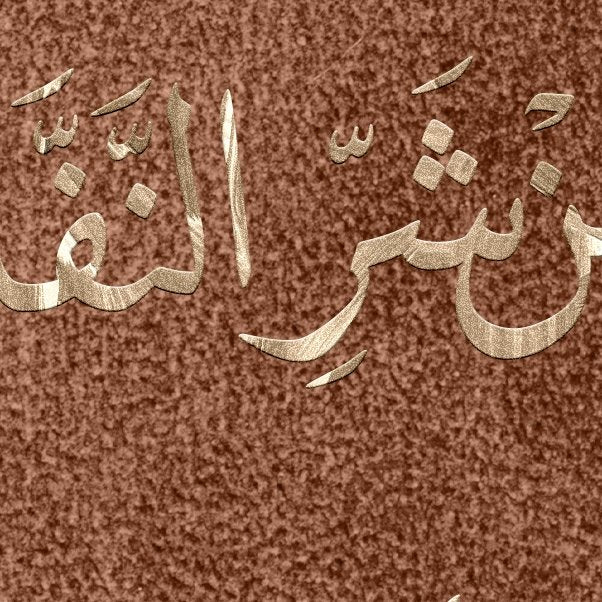 نْ شَرِّ النَّفَّ